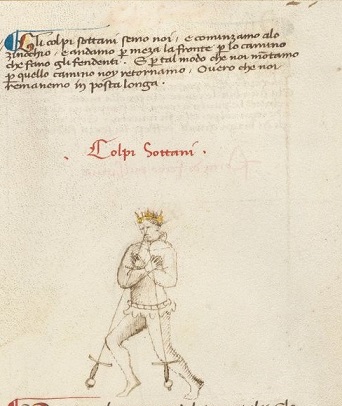 Gli colpi sottani semo noi, e cominzamo alo
zinochio, e andamo p meza la fronte p lo camino
che fano gli fendenti. E p tal modo che noi montamo
p quello camino noy retornamo, Overo che noi
remanemo in posta longa.
Colpi Sottani.